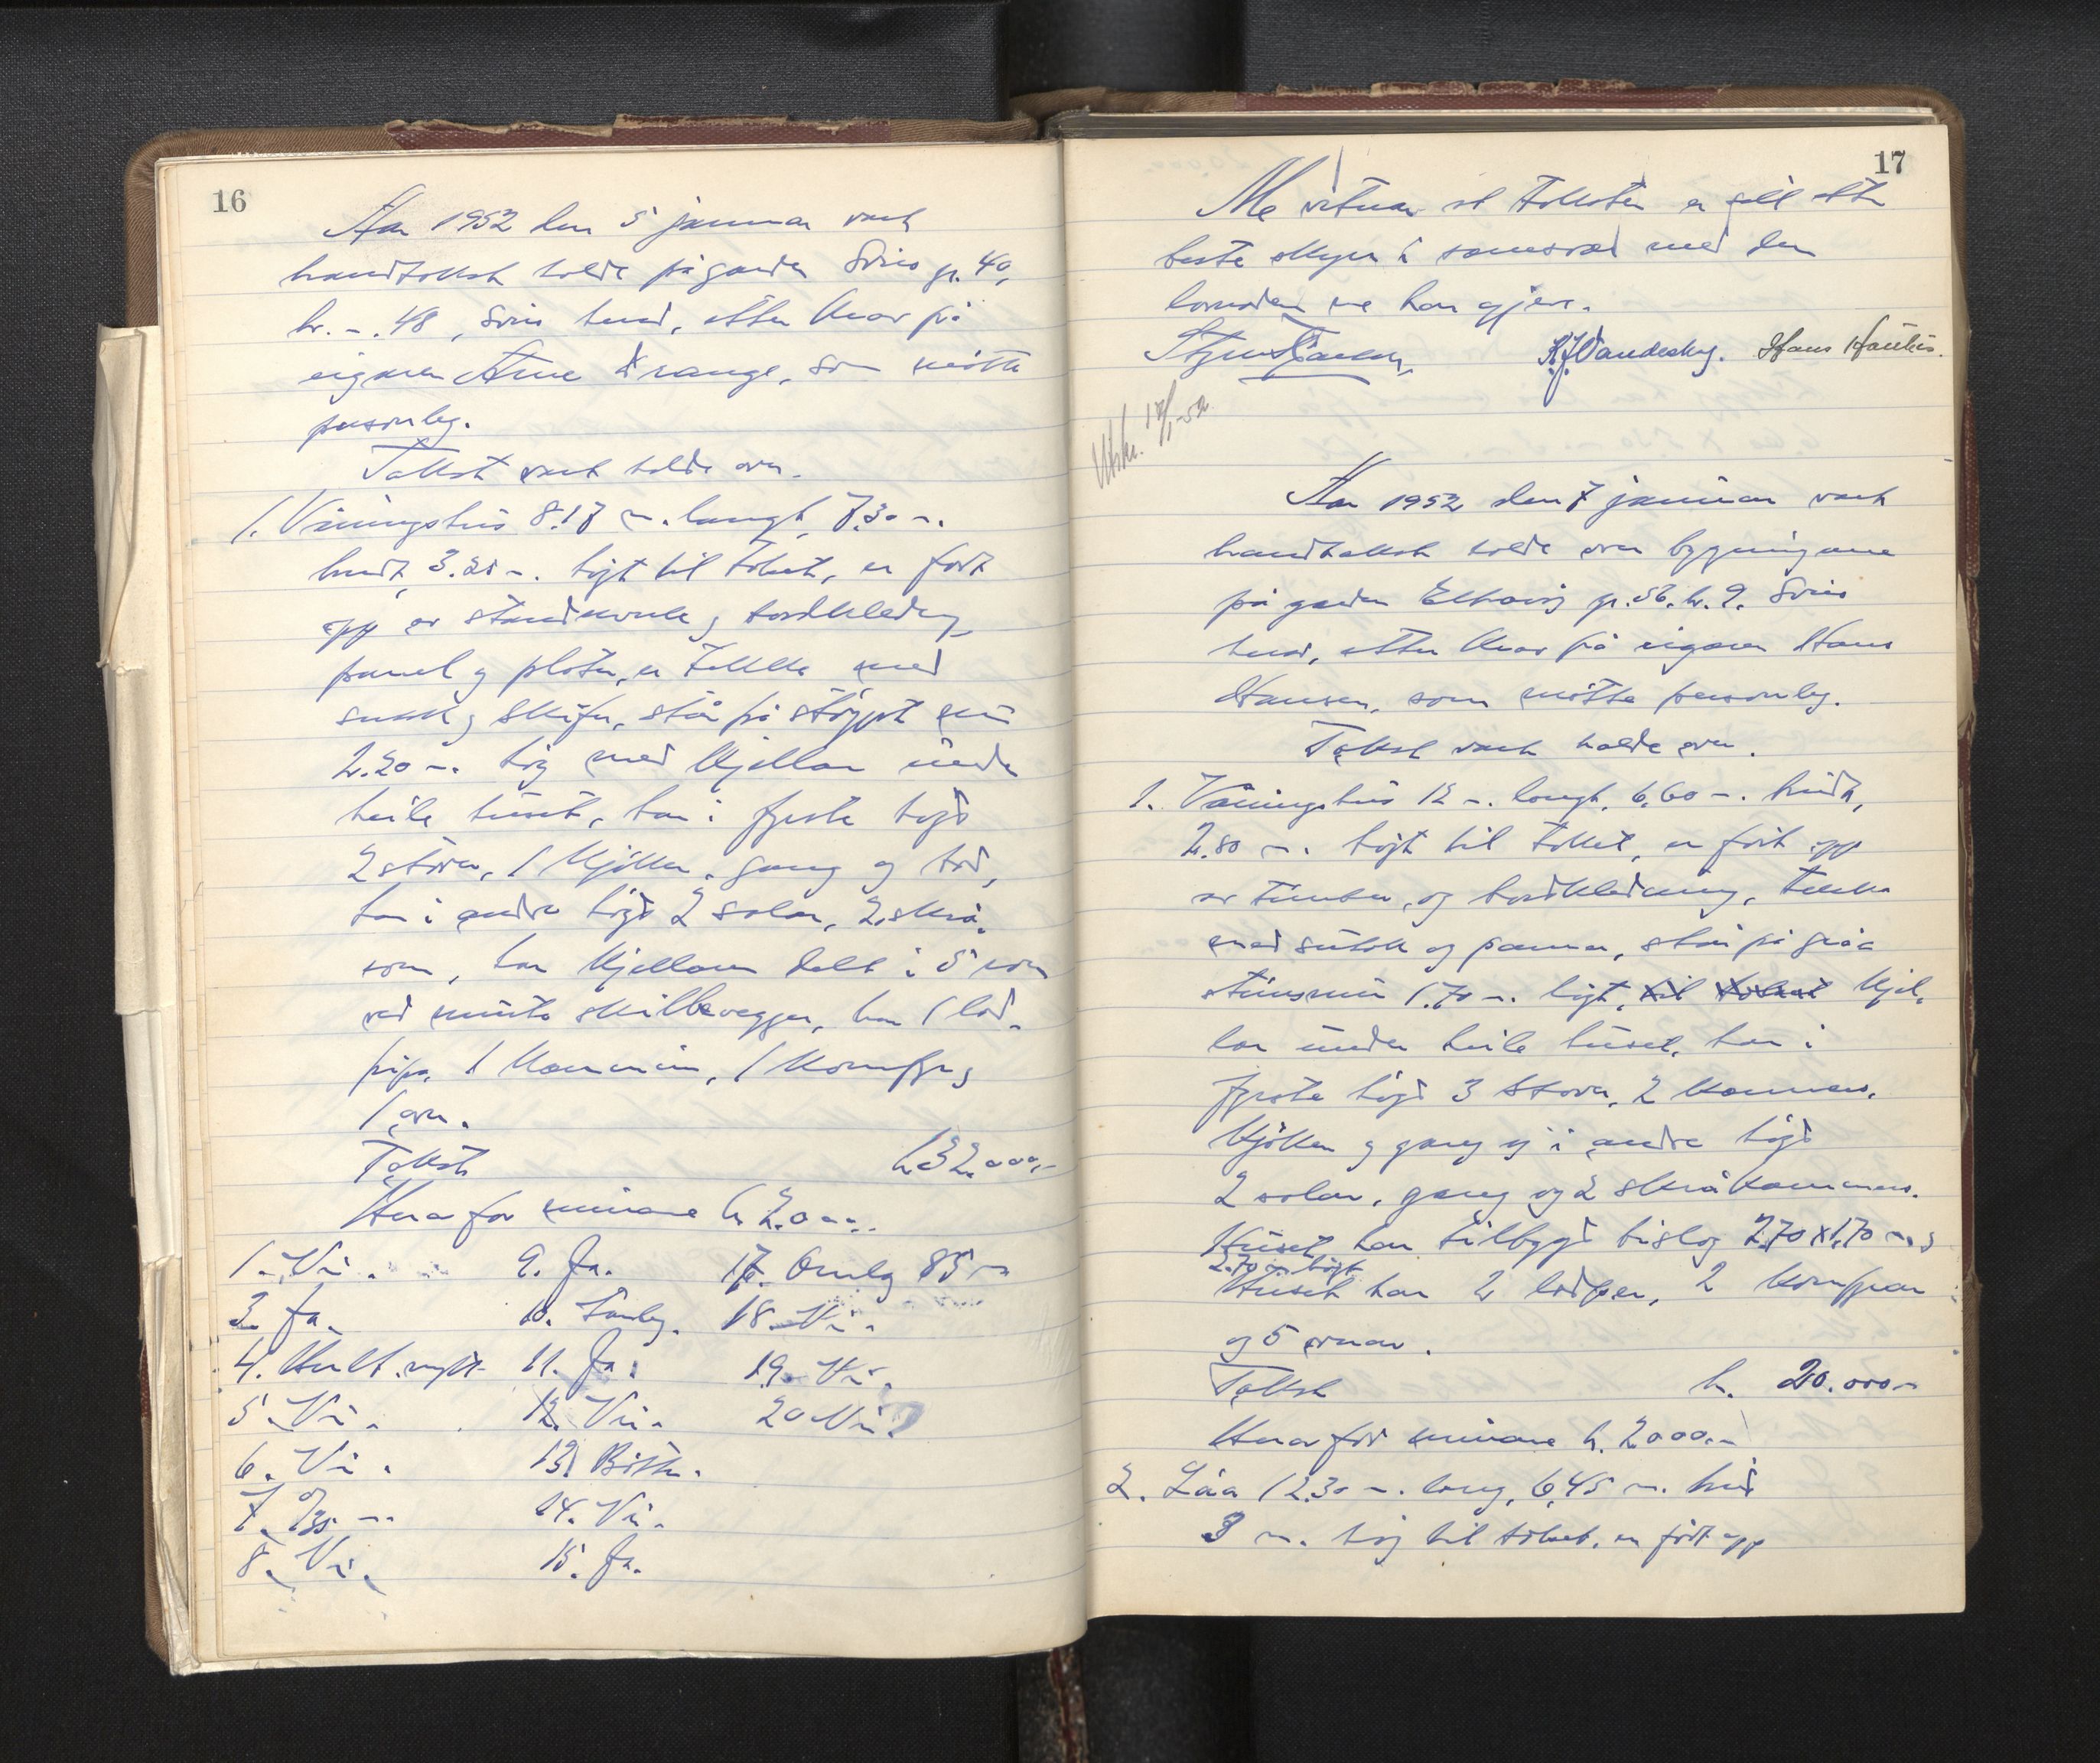 16
Aar 1952 den 5 januar vart
brandtakst halde på garden Svieo gr. 40,
br. -. 48, Svieo herad, etter krav på
eigaren Arne Drange, som møtte
personleg.
Takst vart halde over.
1. Våningshus 8.17 m. langt, 7.30 m.
breidt, 3.20 m. högt til taket, er fört
opp av standverk og bordkledng,
panel og plater, er tekkt med
sutak og Skifer, står på stöypt mur
2.20 m. hög med Kjellar under
heile huset, har i fyrste högd
2 stover, 1 Kjökken, gang og bad,
har i andre högd 2 salar, 2 skrå-
rom, har Kjellaren delt i 5 rom
ved murte skilleveggjer, har 1 lod-
pipa, 1 Kaminn, 1 Komfyr og
1 omn.
Takst kr 32.000,-
Herav for murane kr 2.000.-
1. Nei. 9. Ja. 17. Omlag 85 m
3. Ja. 10. Tunleg. 18. Nei.
4. Heilt nytt. 11. Ja. 19. Nei.
5. Nei. 12. Nei. 20 Nei.
6. Nei. 13. Bitte.
7. 0/35 m. 14. Nei.
8. Nei. 15. Ja.
17
Me vitnar at taksten er gill etter
beste skyn i samsvar med den
lovnaden me har gjeve.
K. J. Vandeskog. Hans Hauktus.
Utskr. 12/1-52
Aar 1952 den 7 januar vart
brandtakst halde over bygningane
på garden Elkavig gr. 56. br. 9. Svieo
herad, etter krav på eigaren Hans
Hansen, som møtte personleg.
Takst vart halde over.
1. Våningshus 12 m. langt, 6,60 m. breidt,
2.80 m. högt til taket, er fört opp
av timber, og bordkledning, tekkt
med sutak og pannor, står på gråa
steinsmur 1.70 m. högt, til taket Kjel-
lar under heile huset, har i
fyrste högd 3 stover, 2 Kammers,
Kjökken og gang og i andre högd
2 salar, gang og 2 skråkammers.
Huset har tilbygd bislag 2,70 x 1,70 m. og
2.70 m högt
Huset har 2 lodpiper, 2 Komfyrar
og 5 omnar.
Takst kr. 20.000.-
Herav for murane kr. 2000.-
2. Löa 12.30 m. lang, 6,45 m. breid
3 m. hög til taket, er fört opp